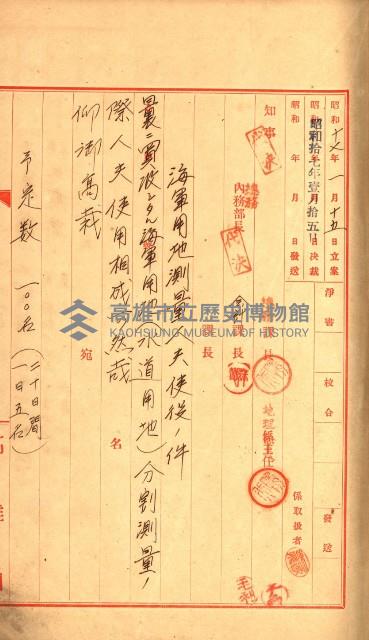 昭和十七年一月十五日立案
昭和 年 月 日決裁
昭和拾七年壹月拾五日
昭和 年 月 日發送
淨書
校合
發送
知事
代決
總務
內務部長
代決
課長
課長
地理係主任
係取扱者
海軍用地測量人夫使役ノ件
曩ニ買收シタル海軍用地(水道用地)分割測量ノ
際人夫使用相成然哉
仰御高裁
宛
名
予定数 一〇〇名(二十日間
一日五名)
高雄市立歷史博物館
KAOHSIUNG MUSEUM OF HISTORY
毛利